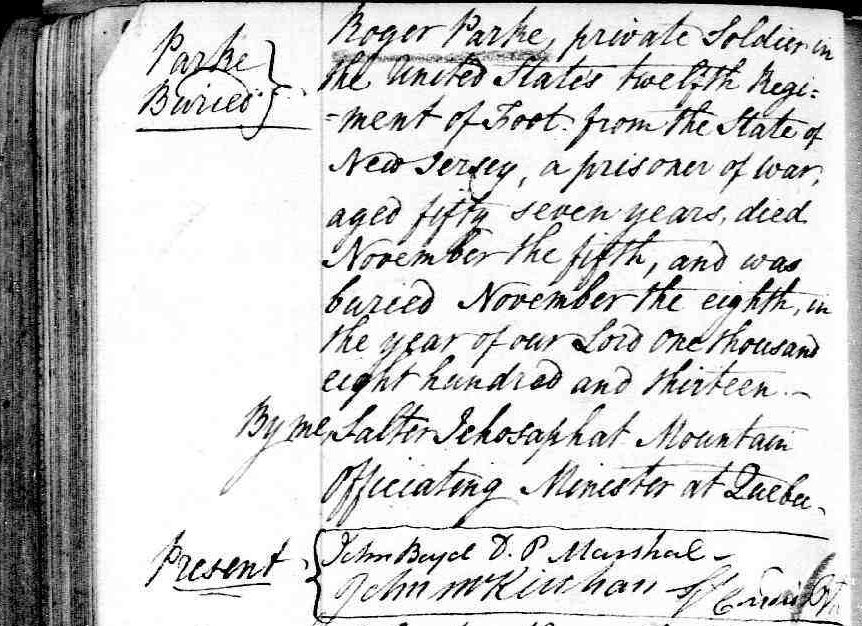 Parke
Buried
Roger Parke, private Soldier in
the United States twelfth Regi:
=ment of Foot. from the State of
New Jersey, a prisoner of war,
aged fifty seven years, died
November the fifth, and was
buried November the eighth, in
the year of our Lord One thousand
eight hundred and thirteen.
By me, Salter Jehosaphat Mountain
Officiating Minister at Quebec.
Present
John Boyd D. P. Marshal
John